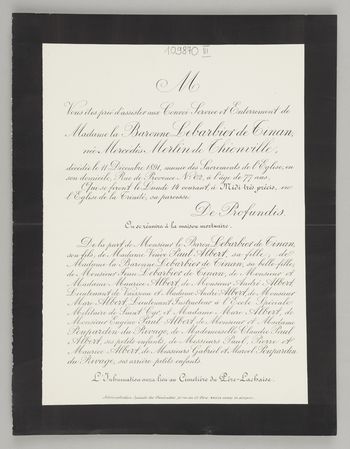 109870 III
M
Vous êtes prié d'assister aux Convoi, Service et Enterrement de
Madame la Baronne Lebarbier de Tinan,
née Mercédès Merlin de Thionville,
décédée le 11 Décembre 1891, munie des Sacrements de l'Église, en
son domicile, Rue de Provence Nº 62, à l'âge de 77 ans.
Qui se feront le Lundi 14 courant, à Midi très précis, en
l'Église de la Trinité, sa paroisse.
De Profundis.
On se réunira à la maison mortuaire.
De la part de Monsieur le Baron Lebarbier de Tinan,
son fils, de Madame Veuve Paul Albert, sa fille, de
Madame la Baronne Lebarbier de Tinan, sa belle-fille,
de Monsieur Jean Lebarbier de Tinan, de Monsieur et
Madame Maurice Albert, de Monsieur André Albert
Lieutenant de Vaisseau et Madame André Albert, de Monsieur
Marc Albert Lieutenant Instructeur à l'École Spéciale
Militaire de Saint Cyr et Madame Marc Albert, de
Monsieur Eugène Paul Albert, de Monsieur et Madame
Poupardin du Rivage, de Mademoiselle Claudie Paul
Albert, ses petits enfants, de Messieurs Paul, Pierre et
Maurice Albert, de Messieurs Gabriel et Marcel Poupardin
du Rivage, ses arrière petits enfants.
L'Inhumation aura lieu au Cimetière du Père-Lachaise.